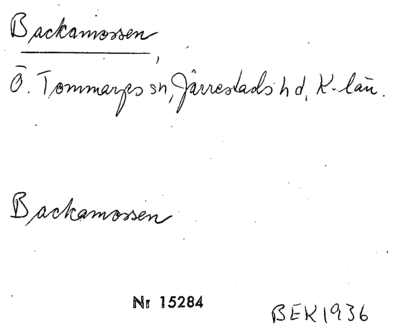 Backamossen,
Ö. Tommarps sn, Järrestads hd, K-län.
Backamossen
Nr 15284
BEK 1936